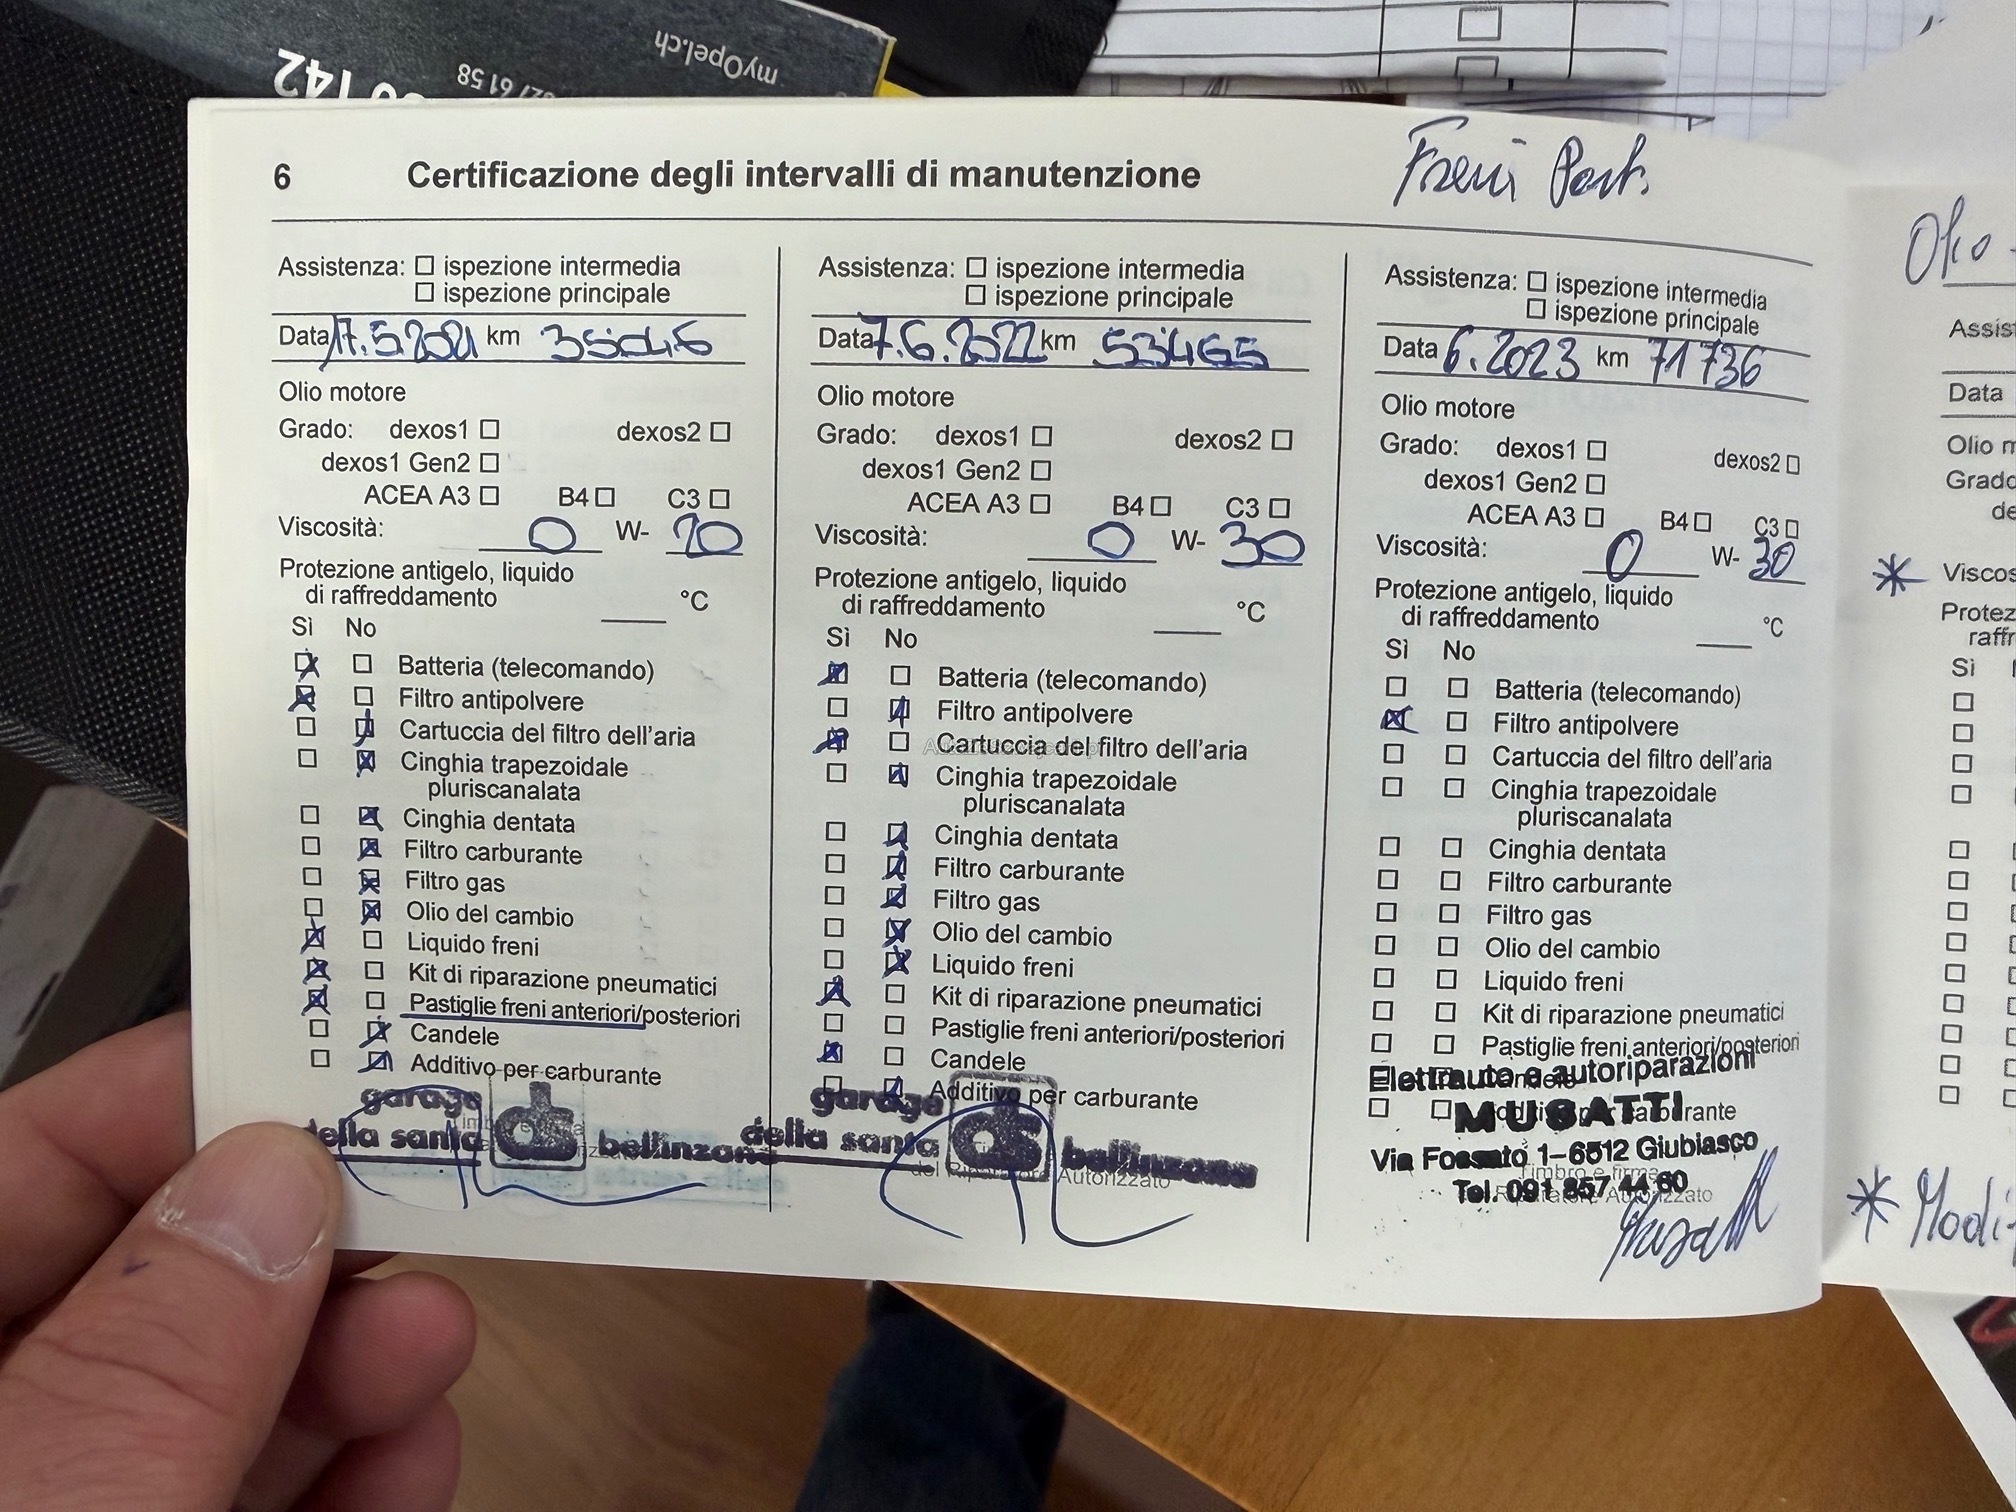 myOpel.ch
142
6 Certificazione degli intervalli di manutenzione
Freni Post.
Assistenza: ☐ ispezione intermedia
☐ ispezione principale
Data 17.5.2021 km 35046
Olio motore
Grado: dexos1 ☐ dexos2 ☐
dexos1 Gen2 ☐
ACEA A3 ☐ B4 ☐ C3 ☐
Viscosità: 0 W- 20
Protezione antigelo, liquido
di raffreddamento °C
Sì No
Batteria (telecomando)
Filtro antipolvere
Cartuccia del filtro dell'aria
Cinghia trapezoidale
pluriscanalata
Cinghia dentata
Filtro carburante
Filtro gas
Olio del cambio
Liquido freni
Kit di riparazione pneumatici
Pastiglie freni anteriori/posteriori
Candele
Additivo per carburante
garage
della santa ds bellinzona
Assistenza: ☐ ispezione intermedia
☐ ispezione principale
Data 7.6.2022 km 53465
Olio motore
Grado: dexos1 ☐ dexos2 ☐
dexos1 Gen2 ☐
ACEA A3 ☐ B4 ☐ C3 ☐
Viscosità: 0 W- 30
Protezione antigelo, liquido
di raffreddamento °C
Sì No
Batteria (telecomando)
Filtro antipolvere
Cartuccia del filtro dell'aria
Cinghia trapezoidale
pluriscanalata
Cinghia dentata
Filtro carburante
Filtro gas
Olio del cambio
Liquido freni
Kit di riparazione pneumatici
Pastiglie freni anteriori/posteriori
Candele
Additivo per carburante
garage
della santa ds bellinzona
del Riparatore Autorizzato
Assistenza: ☐ ispezione intermedia
☐ ispezione principale
Data 6.2023 km 71736
Olio motore
Grado: dexos1 ☐ dexos2 ☐
dexos1 Gen2 ☐
ACEA A3 ☐ B4 ☐ C3 ☐
Viscosità: 0 W- 30
Protezione antigelo, liquido
di raffreddamento °C
Sì No
Batteria (telecomando)
Filtro antipolvere
Cartuccia del filtro dell'aria
Cinghia trapezoidale
pluriscanalata
Cinghia dentata
Filtro carburante
Filtro gas
Olio del cambio
Liquido freni
Kit di riparazione pneumatici
Pastiglie freni anteriori/posteriori
Candele
Additivo per carburante
Elettrauto e autoriparazioni
MUSATTI
Via Fossato 1-6512 Giubiasco
Timbro e firma
Tel. 091 857 44 60
Riparatore Autorizzato
Olio
Assis
Data
Olio m
Grado
de
* Viscos
Protez
raffr
Sì
* Modi